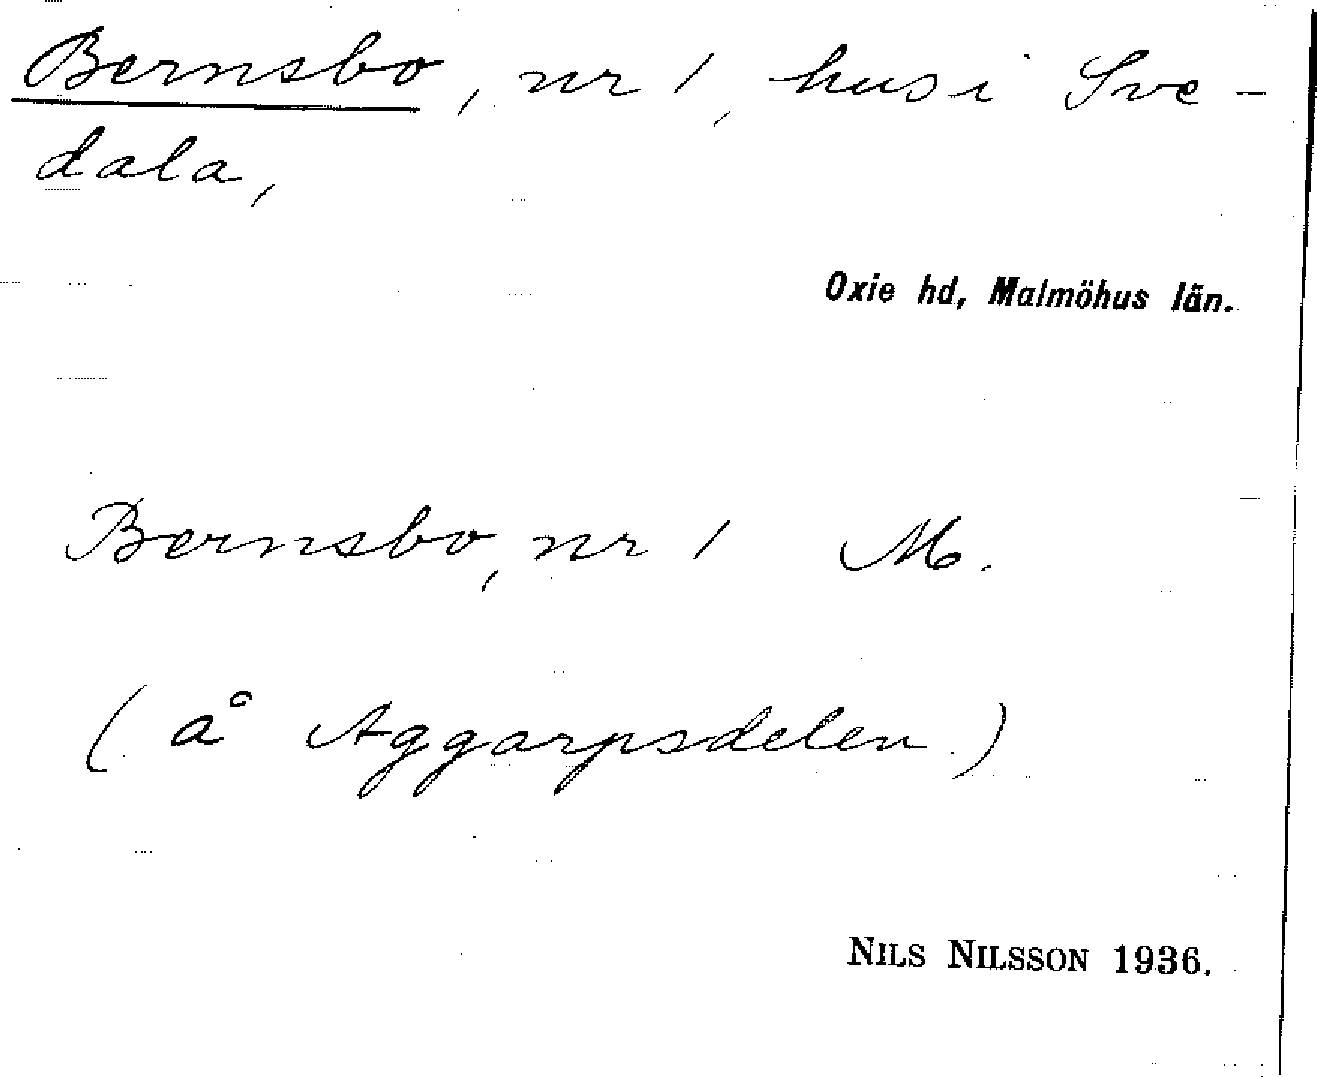 Bernsbo, nr 1, hus i Sve-
dala,
Oxie hd, Malmöhus län.
Bernsbo, nr 1 M.
(å Aggarpsdelen.)
NILS NILSSON 1936.